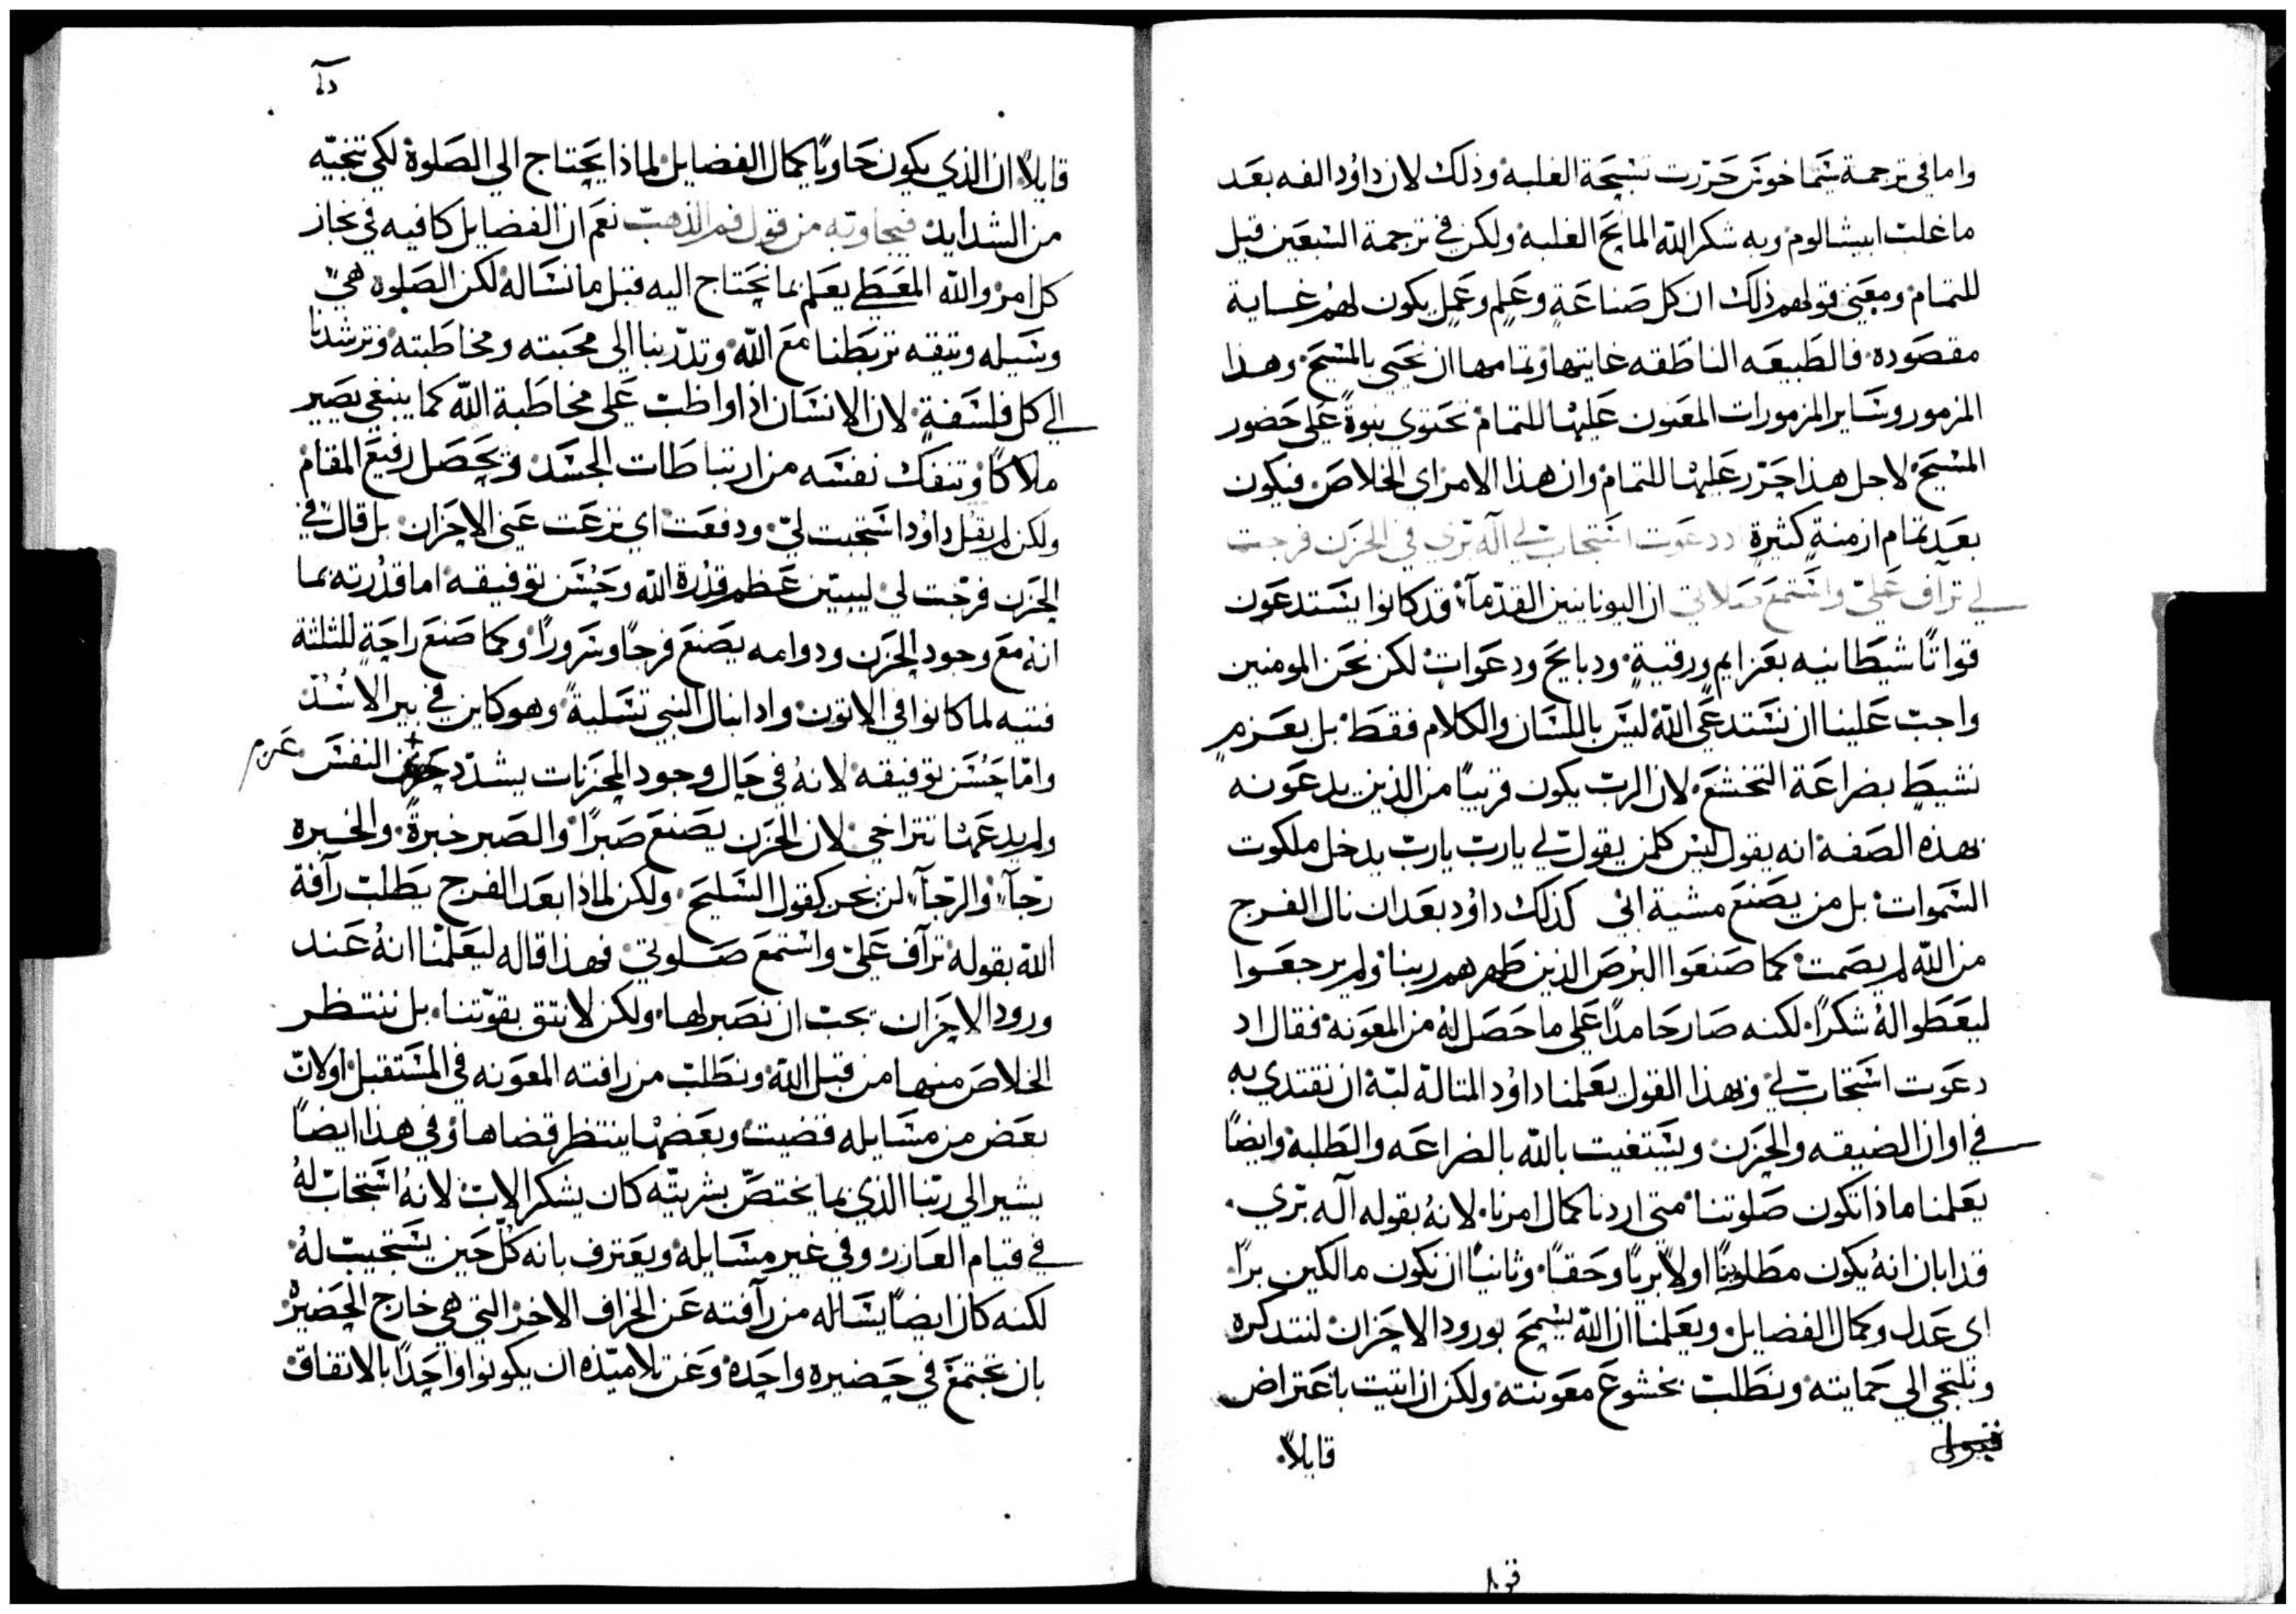 واما في ترجمة سيماخوس حررت تسبحة الغلبة وذلك لان داوُد الفه بعد
ما غلب ابيشالوم وبه شكر الله المانح الغلبة ولكن في ترجمة السبعين قيل
للتمام ومعني قولهم ذلك ان كل صناعةٍ وعلمٍ وعملٍ يكون لهم غاية
مقصوده فالطبيعه الناطقه غايتها وتمامها ان تحيي بالمسيح وهذا
المزمور وساير المزمورات المعنون عليها للتمام تحتوي نبوةً علي حضور
المسيح لاجل هذا حرر عليها للتمام وان هذا الامر اي الخلاص فيكون
بعد تمام ازمنةٍ كثيرة اد دعوت استجاب لي آله بري في الحزن فرجت
لي ترآف عليّ واستمع صلاتي ان اليونانيين القدمآء قد كانوا يستدعون
قواتًا شيطانيه بعزايم ورقيةٍ ودبايح ودعوات لكن نحن المومنين
واجب علينا ان نستدعي الله ليس باللسان والكلام فقط بل بعزمٍ
نشيطٍ بضراعة التخشع لان الرب يكون قريبًا من الذين يدعونه
بهذه الصفة انه يقول ليس كلمن يقول لي يارب يارب يدخل ملكوت
السموات بل من يصنع مشية ابي كذلك داوُد بعد ان نال الفرج
من الله لم يصمت كما صنعوا البرص الذين طهرهم ربنا ولم يرجعوا
ليعطوا لهُ شكرًا لكنه صار حامدًا علي ما حصل لهُ من المعونة فقال اد
دعوت استجاب لي وبهذا القول يعلمنا داوُد المتالة لبّة ان نقتدي به
في اوان الضيقه والحزن ونستغيت بالله بالضراعه والطلبة وايضًا
يعلمنا ماذا تكون صلوتنا متي اردنا كمال امرنا لانهُ بقوله آله بري
قد ابان انهُ يكون مطلوبنا اولًا بريًا وحقًا وثانيًا ان نكون مالكين برًا
اي عدل وكمال الفضايل ويعلمنا ان الله يسمح بورود الاحزان لنتدكره
ونلتجي الي حمايته ونطلب بخشوع معونته ولكن ان اتيت باعتراض
قايلاً
قايلاً ان الذي يكون حاويًا كمال الفضايل لماذا يحتاج الي الصلوة لكي تنجيّه
من الشدايد فيجاوبه من قول فم الذهب نعم ان الفضايل كافيه في نجاز
كل امر والله المعطي يعلم بما نحتاج اليه قبل ما نساله لكن الصلوة هي
وسيله وتيقه تربطنا مع الله وتدربنا الي محبته ومخاطبته وترشدنا
الي كل فلسفةٍ لان الانسان اذا واظب علي مخاطبة الله كما ينبغي يصير
ملاكًا وتنفك نفسه من ارتباطات الجسد ويحصل رفيع المقام
ولكن لم يقل داوُد استجبت ليّ ودفعت اي نزعت عني الاحزان بل قال في
الحزن فرجت لي ليبيّن عظم قدرة الله وحسن توفيقه اما قدرته بما
انهُ مع وجود الحزن ودوامه يصنع فرحًا وسرورًا وكما صنع راحةٍ للثلثة
فتيه لما كانوا في الاتون وادانيال النبي تسليةً وهو كاين في بير الاُسُد
وامّا حسن توفيقه لانهُ في حال وجود المحزنات يشدد النفس
عزم
ولم يدعها تتراخي لان الحزن يصنع صبرًا والصبر خبرةً والخبره
رجآء والرجآء لن يخز كقول السليح ولكن لماذا بعد الفرج يطلب رآفة
الله بقوله ترآف علي واستمع صلوتي فهذا قاله ليعلّمنا انهُ عند
ورود الاحزان يجب ان نصبر لها ولكن لا نتق بقوّتنا بل ننتظر
الخلاص منها من قبل الله ونطلب من رافته المعونه في المستقبل اولانّ
بعض من مسايله قضيت وبعضها ينتظر قضاها وفي هذا ايضًا
يشير الي ربّنا الذي بما يختصّ بشريّته كان يشكر الاب لانهُ استجاب لهُ
في قيام العازر وفي غير مسايله ويعترف بانه كلّ حين يستجيب لهُ
لكنه كان ايضًا يساله من رآفته عن الخراف الاخر التي هي خارج الحضيره
بان تجتمع في حضيره واحده وعن تلاميّذه ان يكونوا واحدًا بالاتفاق